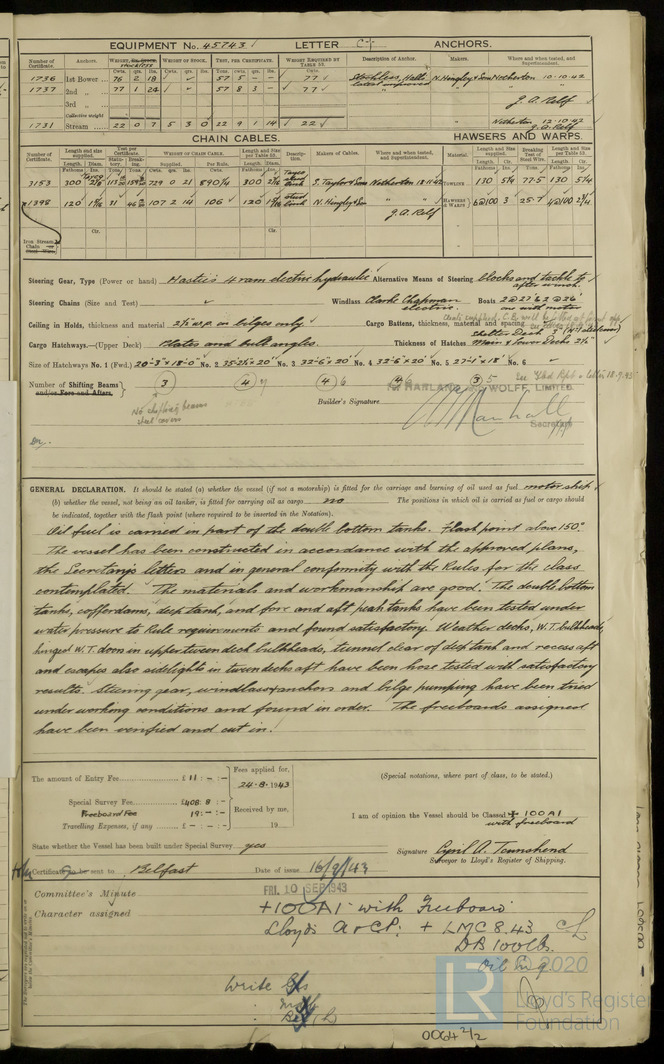 EQUIPMENT No. 45743 LETTER C† ANCHORS.
Number of Certificate. Anchors. WEIGHT, STOCKLESS WEIGHT OF STOCK. TEST, PER CERTIFICATE. WEIGHT REQUIRED BY TABLE 53. Description of Anchor. Makers. Where and when tested, and Superintendent.
Cwts. qrs. lbs. Cwts. qrs. lbs.
1736 1st Bower 76 2 18 57 5 - - 77 Stockless, Halls latest improved N. Hingley & Sons Netherton 10.10.42
1737 2nd " 77 1 24 57 8 3 - 77 " " "
3rd " J.A. Relf
Collective weight
1731 Stream 22 0 7 5 3 0 22 9 1 14 22 Netherton 12.10.42
J.A. Relf
CHAIN CABLES. HAWSERS AND WARPS.
Number of Certificate. Length and size supplied. Test per Certificate. WEIGHT OF CHAIN CABLE. Length and size per Table 53. Description. Makers of Cables. Where and when tested, and Superintendent. Material. Length and size supplied. Breaking Test of Steel Wire. Length and Size per Table 53.
Length. Diam. Statutory. Breaking. Supplied. Per Rule. Length. Diam. Length. Cir. Length. Cir.
3153 300 2 1/16 729 0 21 890 1/4 300 2 7/16 Tayco stud link J. Taylor & Sons Netherton 18.11.42 TOWLINE 130 5 1/4 77.5 130 5 1/4
1398 120 1 9/16 107 2 14 106 120 1 9/16 stud link N. Hingley & Sons " " HAWSERS & WARPS 6@100 3 25.7 4@100 2 3/4
J.A. Relf
Iron Stream Chain or Steel Wire.
Steering Gear, Type (Power or hand) Hastie's 4 ram electric hydraulic Alternative Means of Steering blocks and tackle to after winch.
Steering Chains (Size and Test) Windlass Clarke Chapman electric. Boats 2@27' & 2@26' one with motor
Ceiling in Holds, thickness and material 2½" W.P. on bilges only. Cargo Battens, thickness, material and spacing
Shelter Deck 3"
Cargo Hatchways.—(Upper Deck) Plates and bulb angles. Thickness of Hatches Main & Tower Decks 2½"
Size of Hatchways No. 1 (Fwd.) 20'-3" x 18'-0" No. 2 35'-2½" x 20' No. 3 32'-6" x 20' No. 4 32'-6" x 20' No. 5 27'-1" x 18' No. 6
Number of Shifting Beams and/or Fore and Afters. 3 4 4 6 4 6 3 5
For HARLAND AND WOLFF, LIMITED.
No shifting beams steel covers
Builder's Signature
Secretary
GENERAL DECLARATION. It should be stated (a) whether the vessel (if not a motorship) is fitted for the carriage and burning of oil used as fuel motorship
(b) whether the vessel, not being an oil tanker, is fitted for carrying oil as cargo no The positions in which oil is carried as fuel or cargo should
be indicated, together with the flash point (where required to be inserted in the Notation).
Oil fuel is carried in part of the double bottom tanks. Flash point above 150°
The vessel has been constructed in accordance with the approved plans,
the Secretary's letters and in general conformity with the Rules for the class
contemplated. The materials and workmanship are good. The double bottom
tanks, cofferdams, deep tank, and fore and aft peak tanks have been tested under
water pressure to Rule requirements and found satisfactory. Weather decks, W.T. bulkheads,
hinged W.T. doors in upper tween deck bulkheads, tunnel clear of deep tank and recess aft
and escapes also sidelights in tween decks aft have been hose tested with satisfactory
results. Steering gear, windlass & anchors and bilge pumping have been tried
under working conditions and found in order. The freeboards assigned
have been verified and cut in.
The amount of Entry Fee £ 11 : - : -
Fees applied for, 24.8.1943
(Special notations, where part of class, to be stated.)
Special Survey Fee £408 : 8 : -
Freeboard Fee 19 : - : -
Received by me,
Travelling Expenses, if any £ - : - : -
19
I am of opinion the Vessel should be Classed ✠ 100A1
with freeboard
State whether the Vessel has been built under Special Survey yes
Signature Cyril A. Townshend
Surveyor to Lloyd's Register of Shipping.
Certificate to be sent to Belfast Date of issue 16/9/43
Committee's Minute FRI. 10 SEP 1943
Character assigned +100A1 with Freeboard
Lloyd's A & CP. + LMC 8.43 CL
DB 100 lb.
Oil Eng.
Write
© 2020
LR Lloyd's Register Foundation
0064 2/2